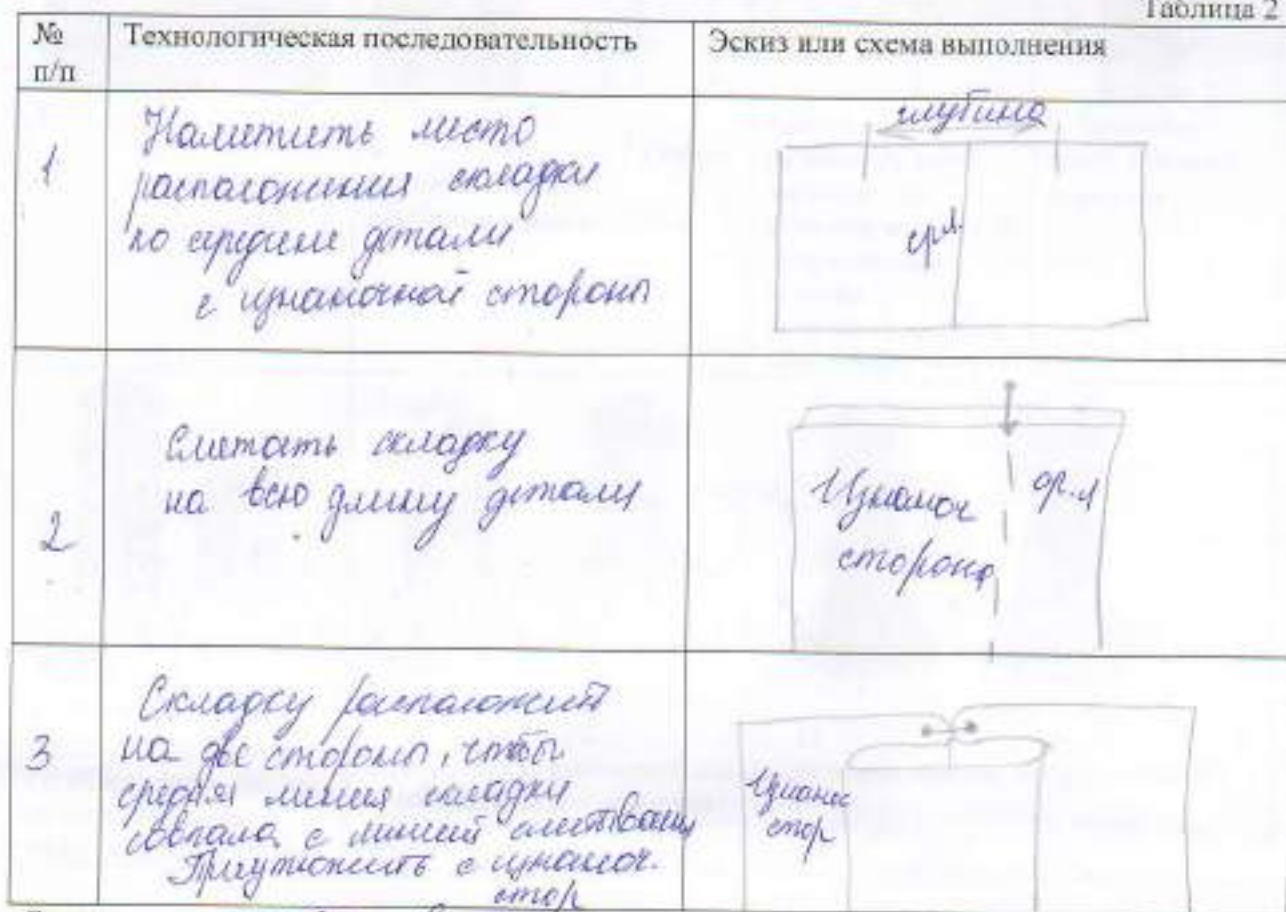 Таблица 2
№ п/п
Технологическая последовательность
Эскиз или схема выполнения
1
Наметить место
расположения складки
по середине детали
с изнаночной стороны
глубина
ср.л.
2
Сметать складку
на всю длину детали
Изнаноч
сторона
ср.л
3
Складку расположит
на две стороны, чтобы
средняя линия складки
совпала с линией сметывания
Приутюжить с изнаноч.
стор
Изнанос
стор